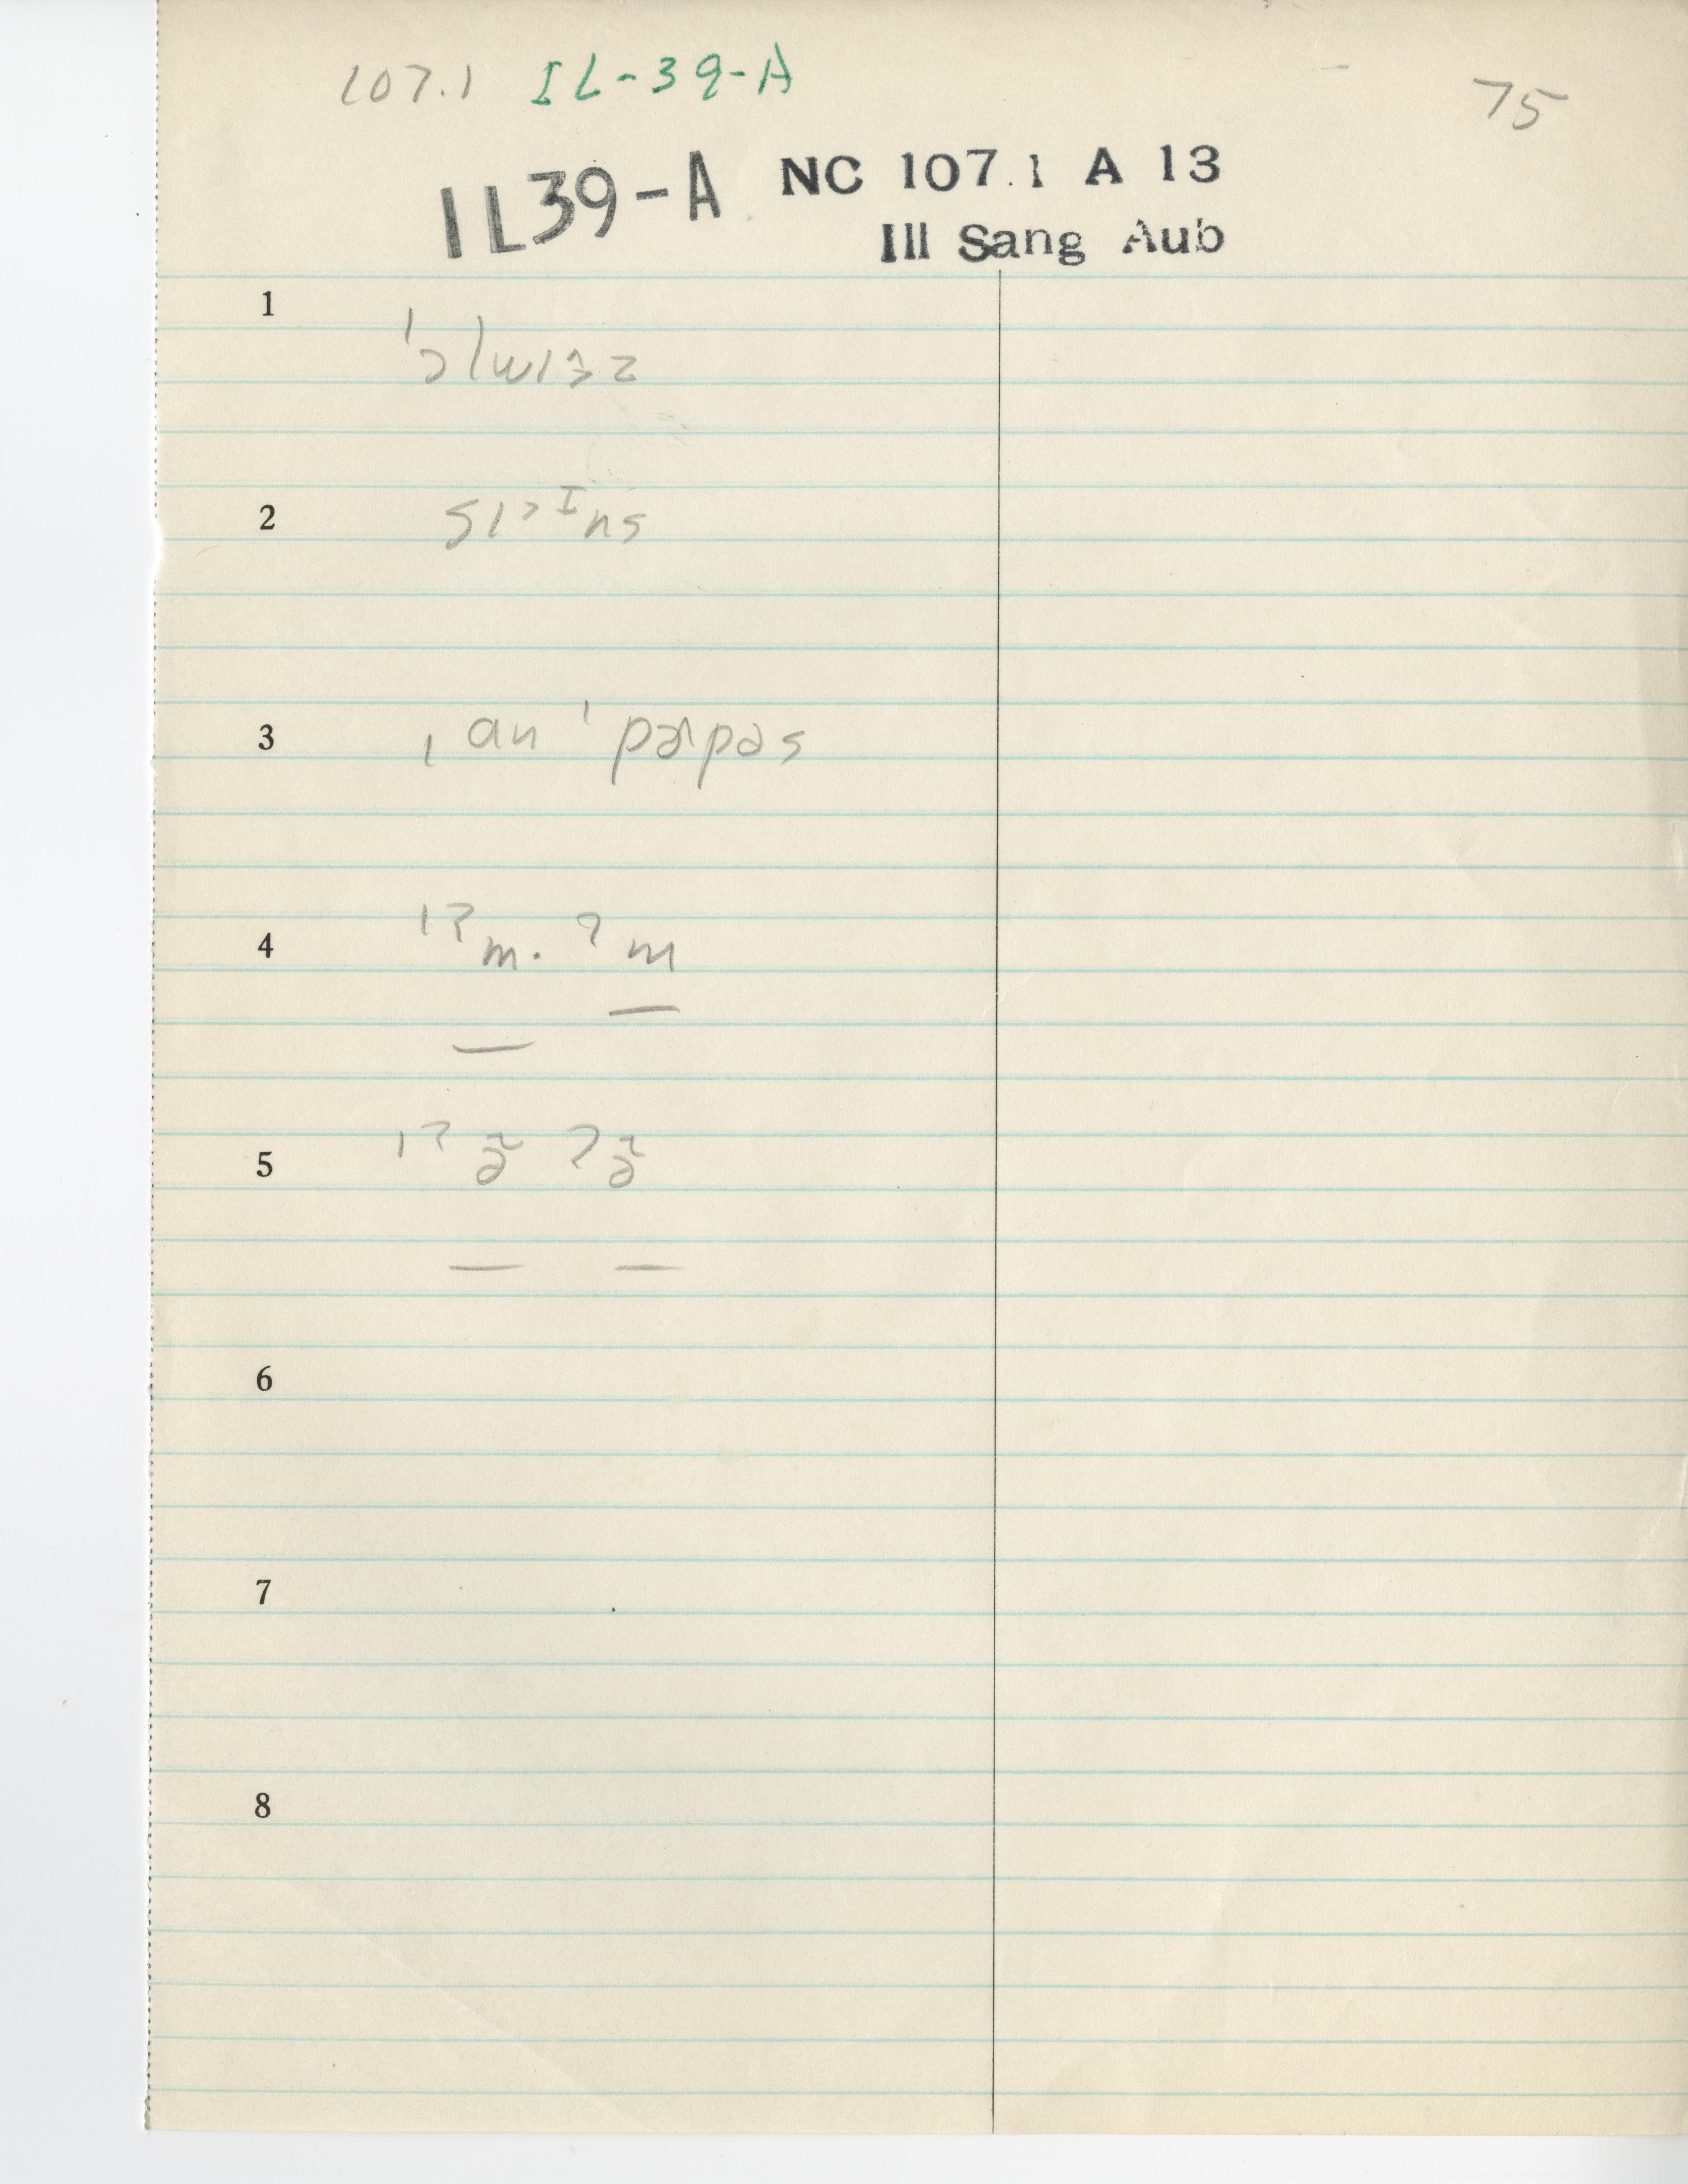 107.1 IL-39-A
75
IL39-A NC 107.1 A 13
Ill Sang Aub
1
2 sɪ>ᴵns
3 ˌan ˈpɚpəs
4 ˈʔm. ʔm
5 ˈʔə̃ ʔə̃
6
7
8